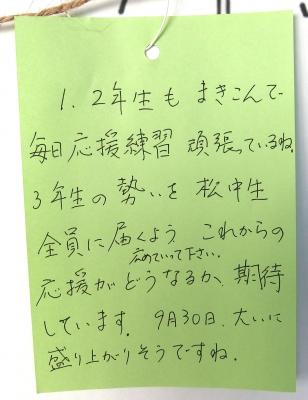 1.2年生も まきこんで
毎日応援練習 頑張っているね。
3年生の勢いを 松中生
全員に届くよう これからの
広めていって下さい。
応援がどうなるか、期待
しています。 9月30日、大いに
盛り上がりそうですね。